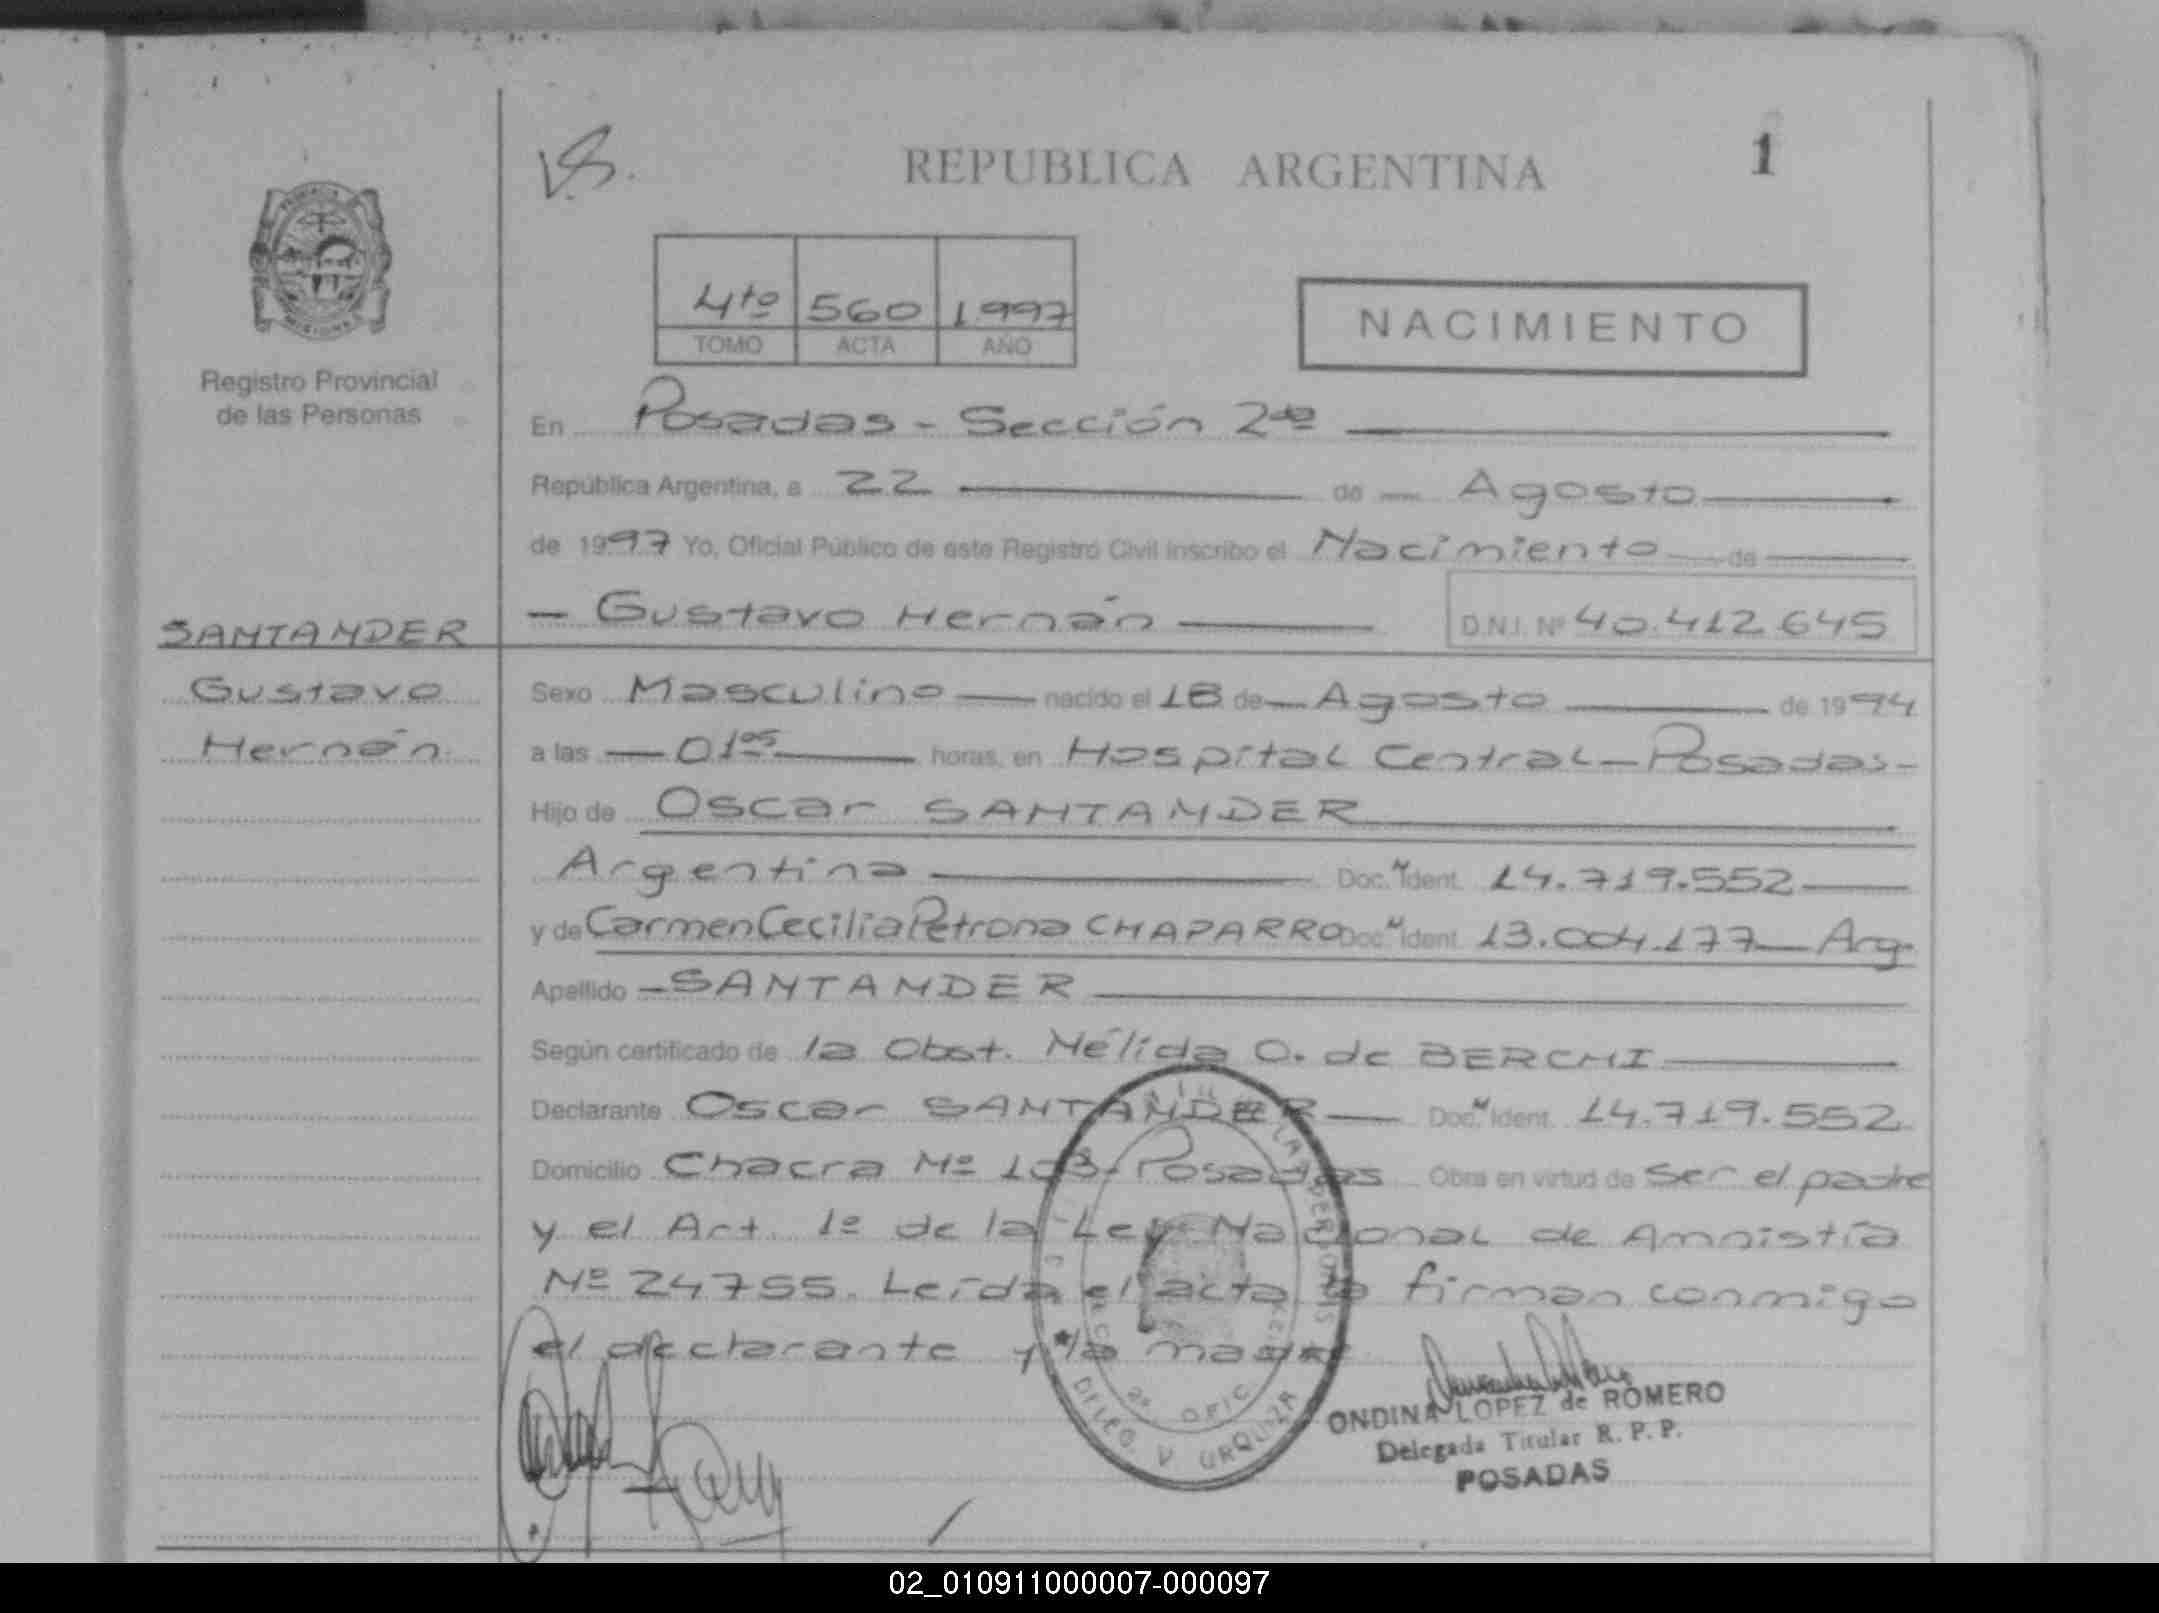 REPUBLICA ARGENTINA
1
4to 560 1997
TOMO ACTA AÑO
NACIMIENTO
Registro Provincial
de las Personas
En Posadas - Sección 2da
República Argentina, a 22 de Agosto
de 1997 Yo, Oficial Público de este Registro Civil inscribo el Nacimiento de
- Gustavo Hernán D.N.I. Nº 40.412.645
SANTANDER
Gustavo
Hernán
Sexo Masculino nacido el 18 de Agosto de 1994
a las 01 05 horas, en Hospital Central - Posadas -
Hijo de Oscar SANTANDER
Argentina Doc. N Ident. 14.719.552
y de Carmen Cecilia Petrona CHAPARRO Doc. N Ident. 13.004.177 Arg.
Apellido - SANTANDER
Según certificado de la Obst. Nélida O. de BERCHI
Declarante Oscar SANTANDER Doc. N Ident. 14.719.552
Domicilio Chacra Nº 103 - Posadas Obra en virtud de ser el padre
y el Art. 1º de la Ley Nacional de Amnistía
Nº 24755. Leída el acta la firman conmigo
el declarante y la madre
2ª OFIC.
DELEG. V URQUIZA
ONDINA LOPEZ de ROMERO
Delegada Titular R. P. P.
POSADAS
02_010911000007-000097